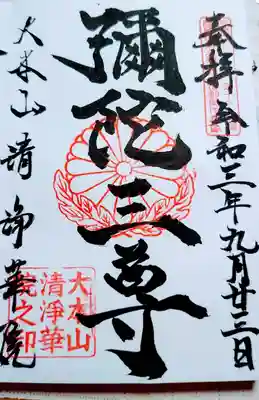 奉拝 令和三年九月廿三日
彌陀三尊
大本山 清浄華院
大本山
清淨華
院之印